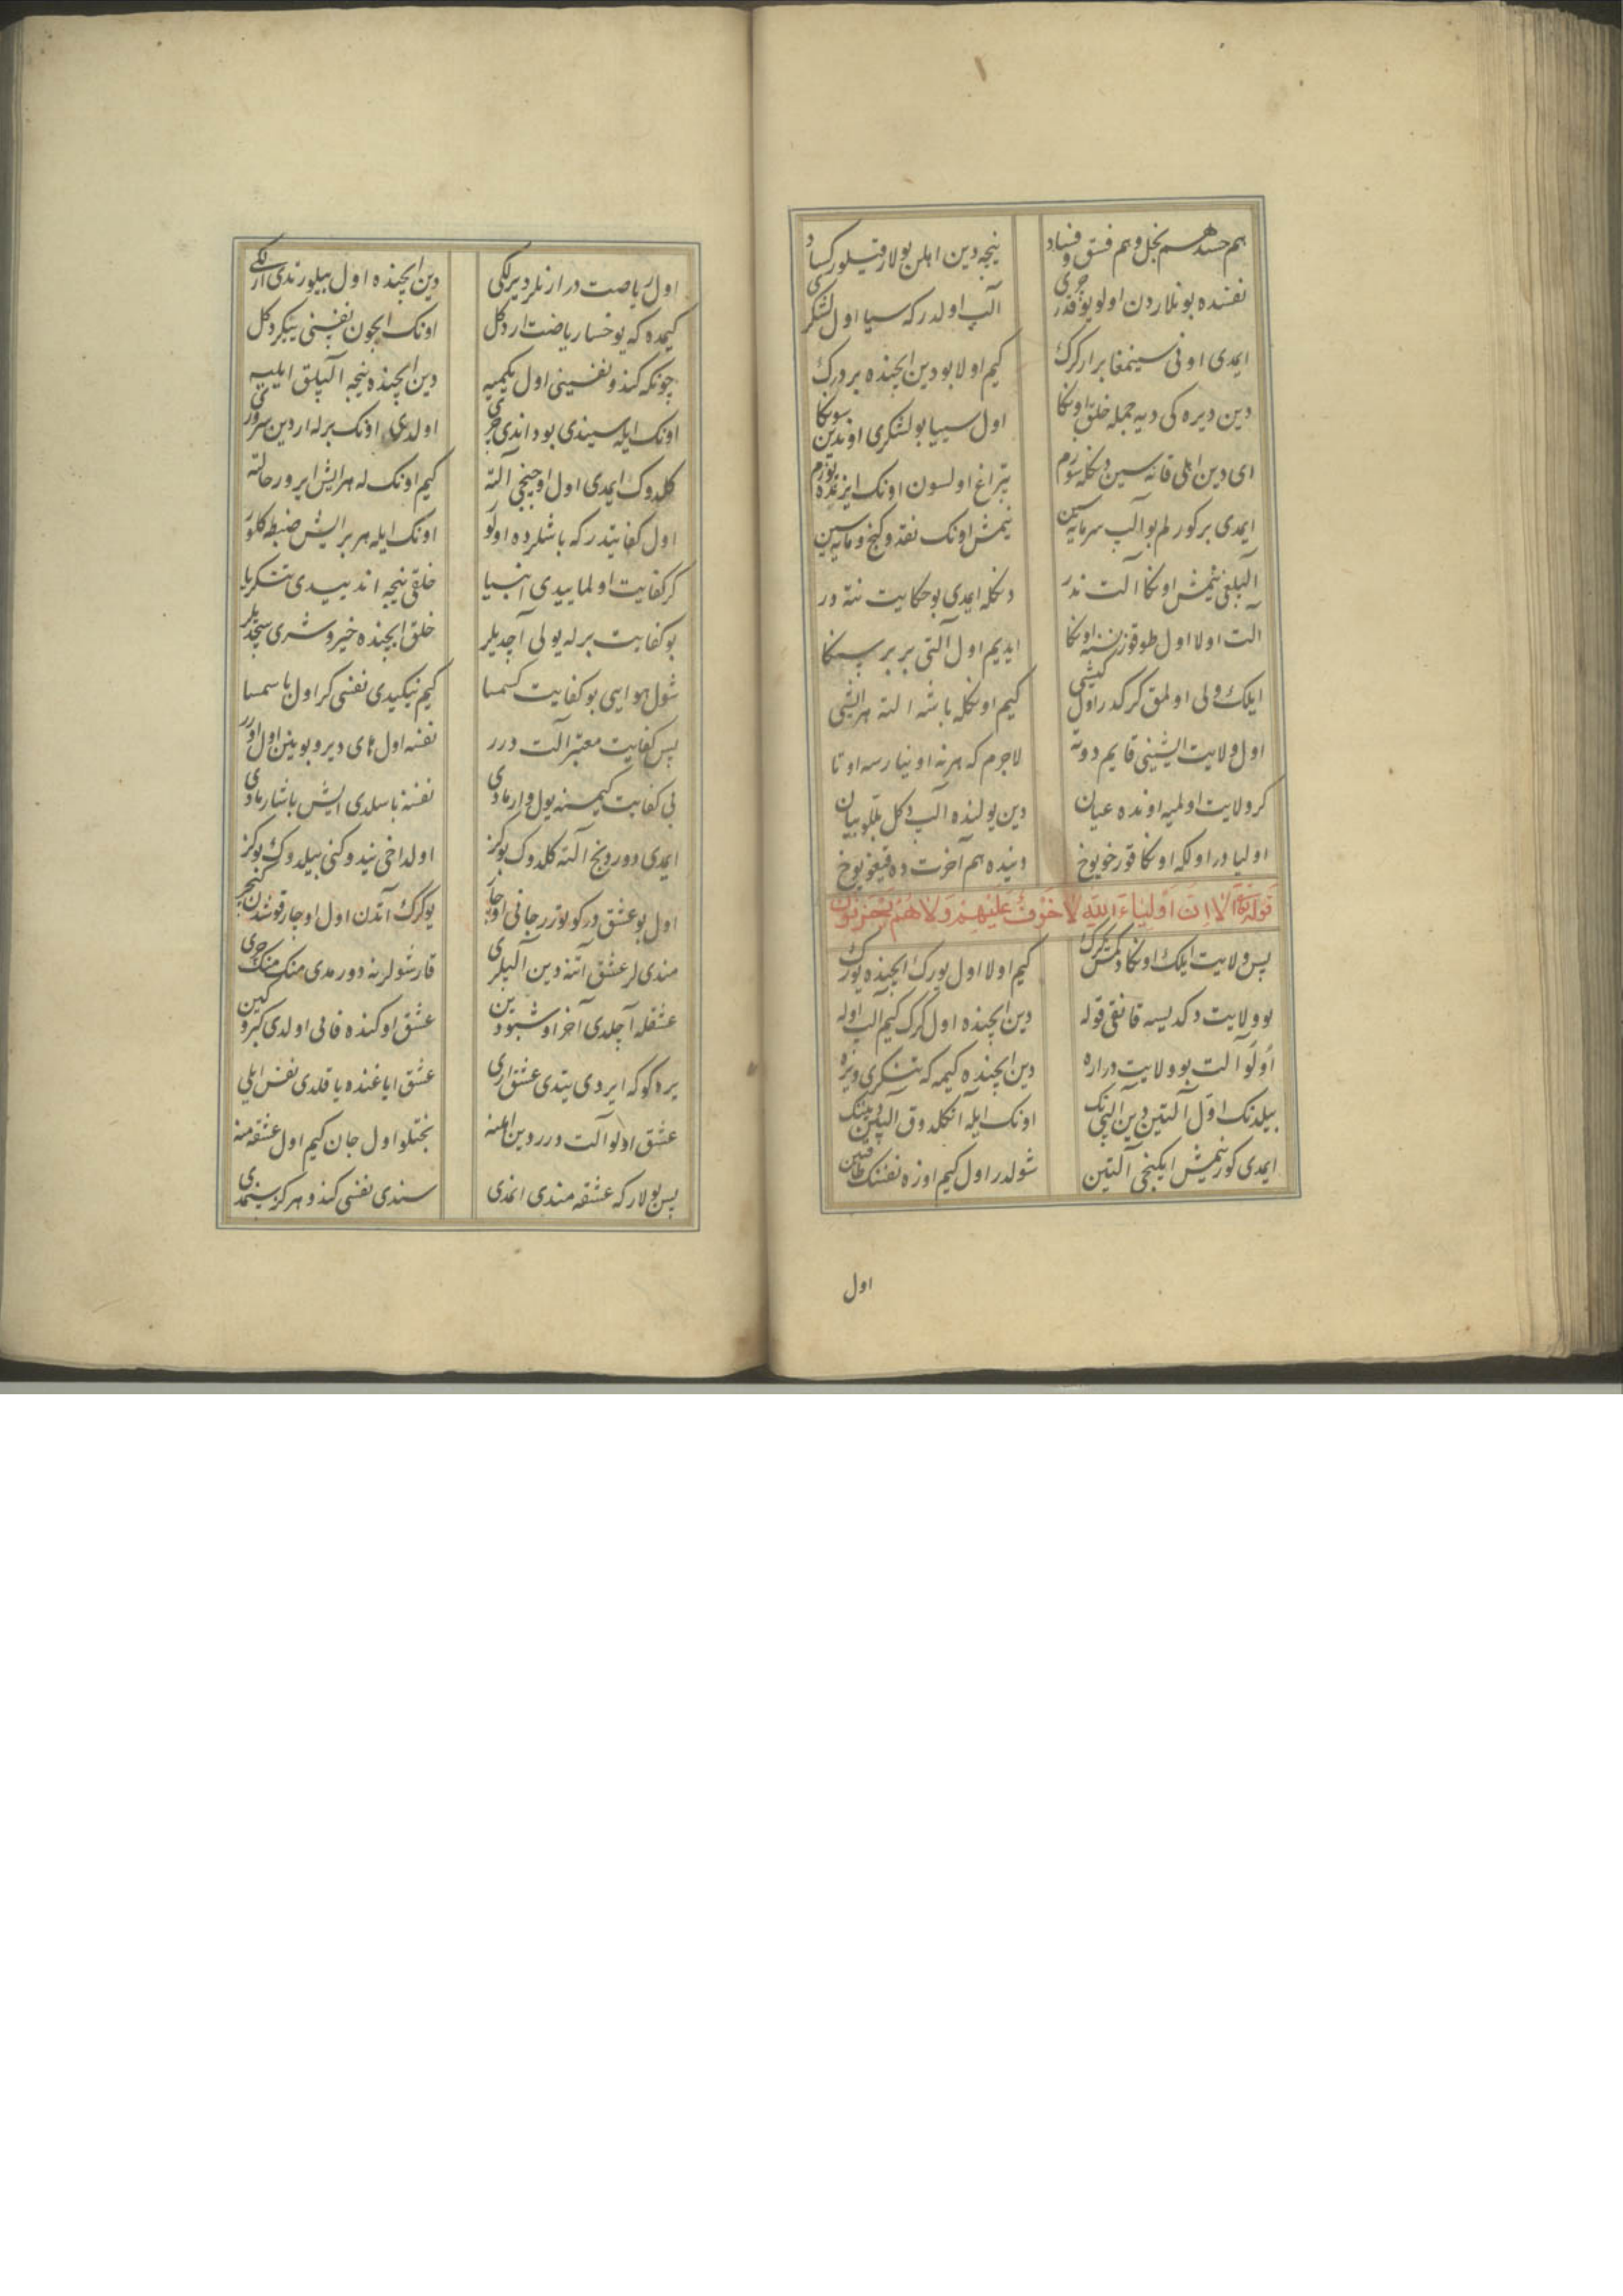 هم حسد هم بخل و هم فسق و فساد نیجه دین اهلن بولار قیلور کساد
نفسنده بونلاردن اولو یوقدر چری آلپ اولدر که سیا اول لشکری
ایمدی اونی سینمغا بر ار کرک کیم اولا بو دین ایچنده بر درک
دین دیره کی دیه جمله خلق اونکا اول سییا بو لشکری اوندین سونکا
ای دین اهلی قانه سین دکله سوزم تپراغ اولسون اونک ایزنده یوزم
ایمدی بر کورلم بو آلپ سرمایه سین نیمش اونک نقد و کنج و مایه سین
آلپلغی نیمش اونکا آلت ندر دکله ایمدی بو حکایت نته در
الت اولا اول طوقوز نسنه اونکا ایدیم اول آلتی بر بر سنکا
ایلک ولی اولمق کرکدر اول کیشی کیم اونکله باشه الته هر ایشی
اول ولایت ایشینی قایم دوته لاجرم که هر نه اوینارسه اوتا
کر ولایت اولمیه اونده عیان دین یولنده آلپ دکل بللو بیان
اولیا در اولکه اونکا قورخو یوخ دنیده هم آخرت ده قیغو یوخ
قوله تعالی الا ان اولیاء الله لا خوف علیهم ولا هم یحزنون
پس ولایت ایلک اونکا دمش کرک کیم اولا اول یورک ایچنده یورک
بو ولایت دکدیسه قانقی قوله دین ایچنده اول کرک کیم الپ اوله
اولو آلت بو ولایت در اره دین ایچنده کیمه که تنکری ویره
بیلدنک اول آلتین دین الپینک اونک ایله آنکلدوق آلپلین دینک
ایمدی کور نیمش ایکنجی آلتین شولدر اول کیم اوزه نفسنک طاقتین
اول
اول ریاضت در ارنلر دیرلکی دین ایچنده اول بیلورندی ارلکی
کیمده که یوخسا ریاضت ار دکل اونک ایچون نفسنی ییکر دکل
چونکه کندو نفسینی اول ییکمیه دین ایچنده نیجه آلپلق ایلیه
اونک ایله سیندی بوداندی چری اولدی اونک برله ار دین سروری
کلدوک ایمدی اول اوچنجی آلته کیم اونک له هر ایش ایرور حالته
اول کفایتدر که باشلرده اولو اونک ایله هر بر ایش ضبطه کلور
کر کفایت اولماییدی آنبیا خلقی نیجه اندییدی تنکریا
بو کفایت برله یولی آچدیلر خلق ایچنده خیر و شری سچدیلر
شول هوایی بو کفایت کسمسا کیم ییکیدی نفسی کر اول باسمسا
پس کفایت معتبر آلت درر نفسه اول های دیر و بوینن اول اورر
بی کفایت کیمسنه یول وارمادی نفسه باسلدی ایش باشارمادی
ایمدی دوردنج آلته کلدوک بو کز اولداخی نیدوکنی بیلدوک بو کز
اول بو عشق در کویوزر جانی اوچار یوکرک آتدن اول اوچار قوشدن کچر
مندی لر عشق آتنه دین آلپلری قارشولرنه دورمدی منک منک چری
عشقله آچلدی آخر اوشبو دین عشق اوکنده فانی اولدی کبر و کین
یرد کوکه ایردی یتدی عشق اری عشق ایاغنده یاقلدی نفس ایلی
عشق اولو آلت درر دین اهلنه بختلو اول جان کیم اول عشقه منه
پس بولار که عشقه مندی اندی سندی نفسی کندو هرکز سینمدی